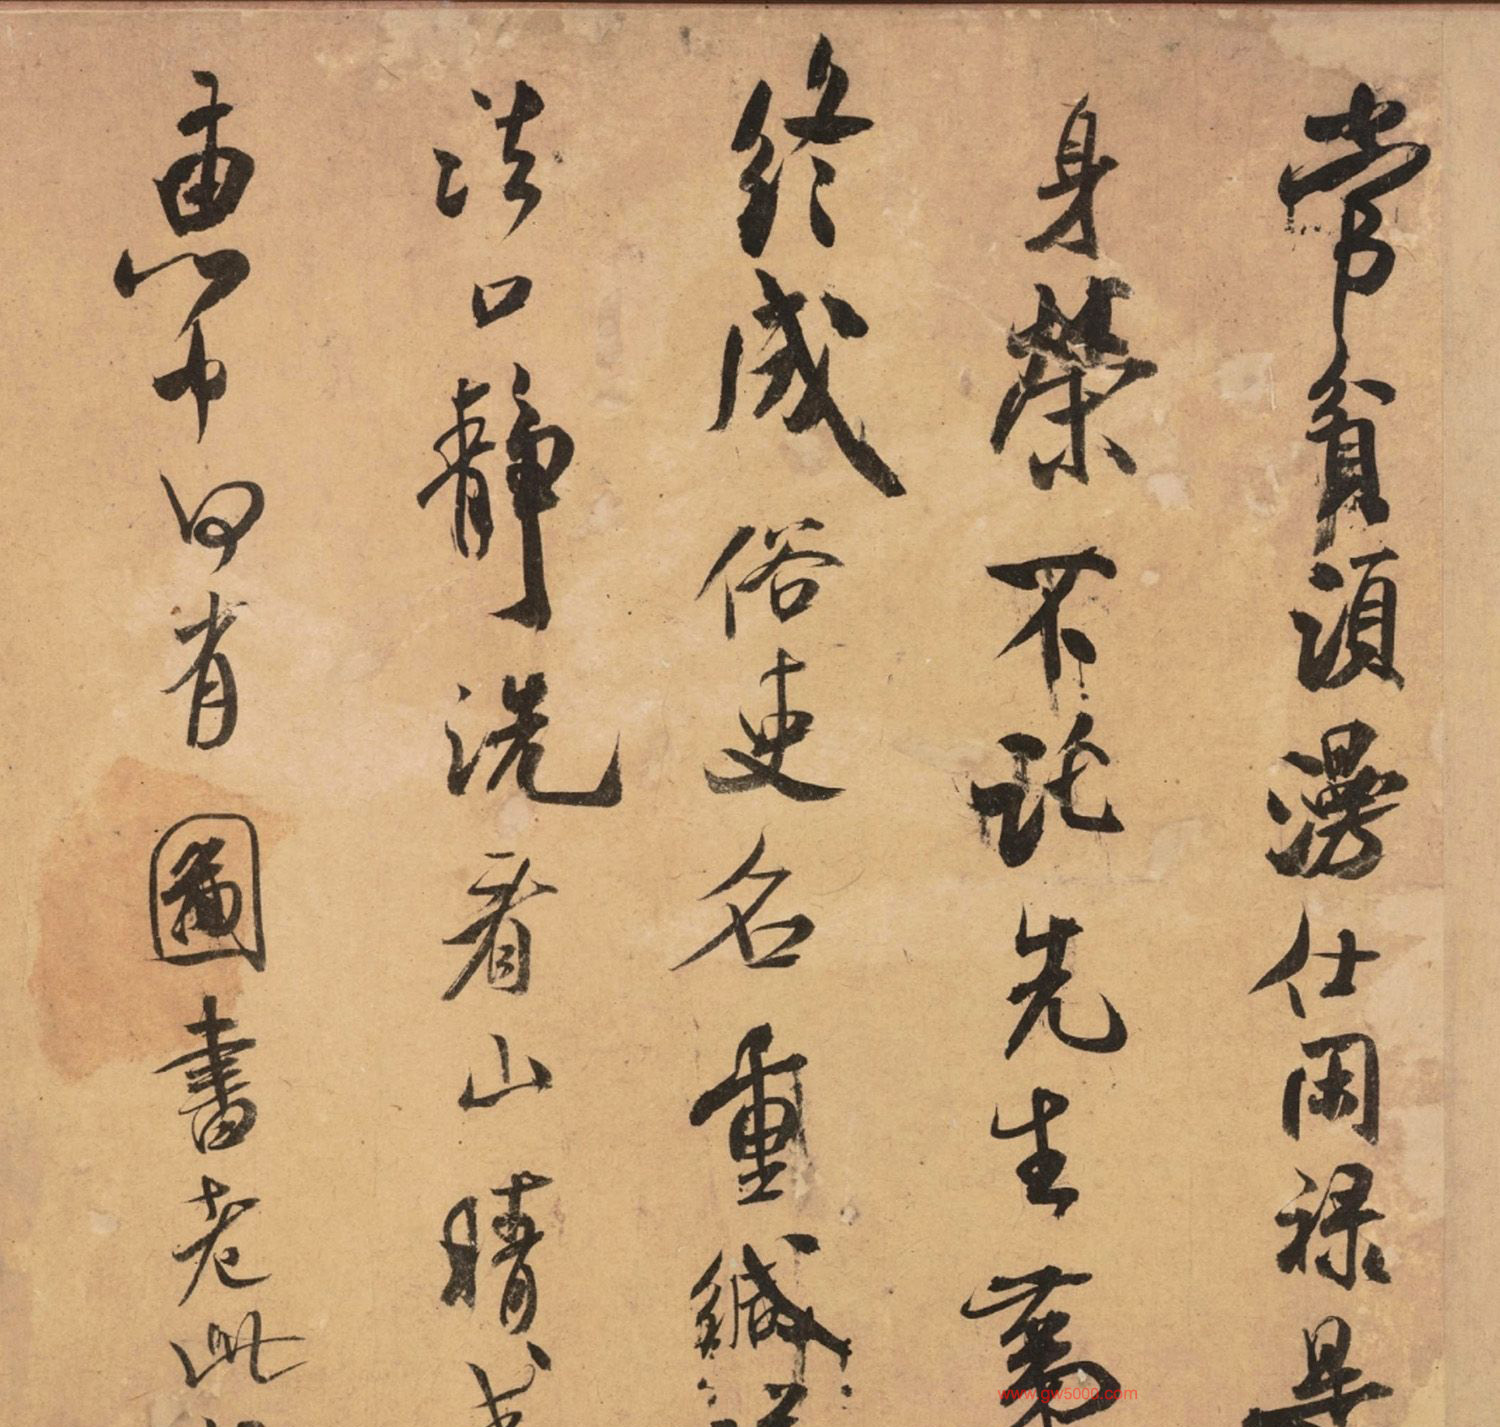 常貧須漫仕閑祿是
身榮不託先生薦
終成俗吏名重緘
淡口靜洗看山晴
惠中何有圖書老此
www.gw5000.com